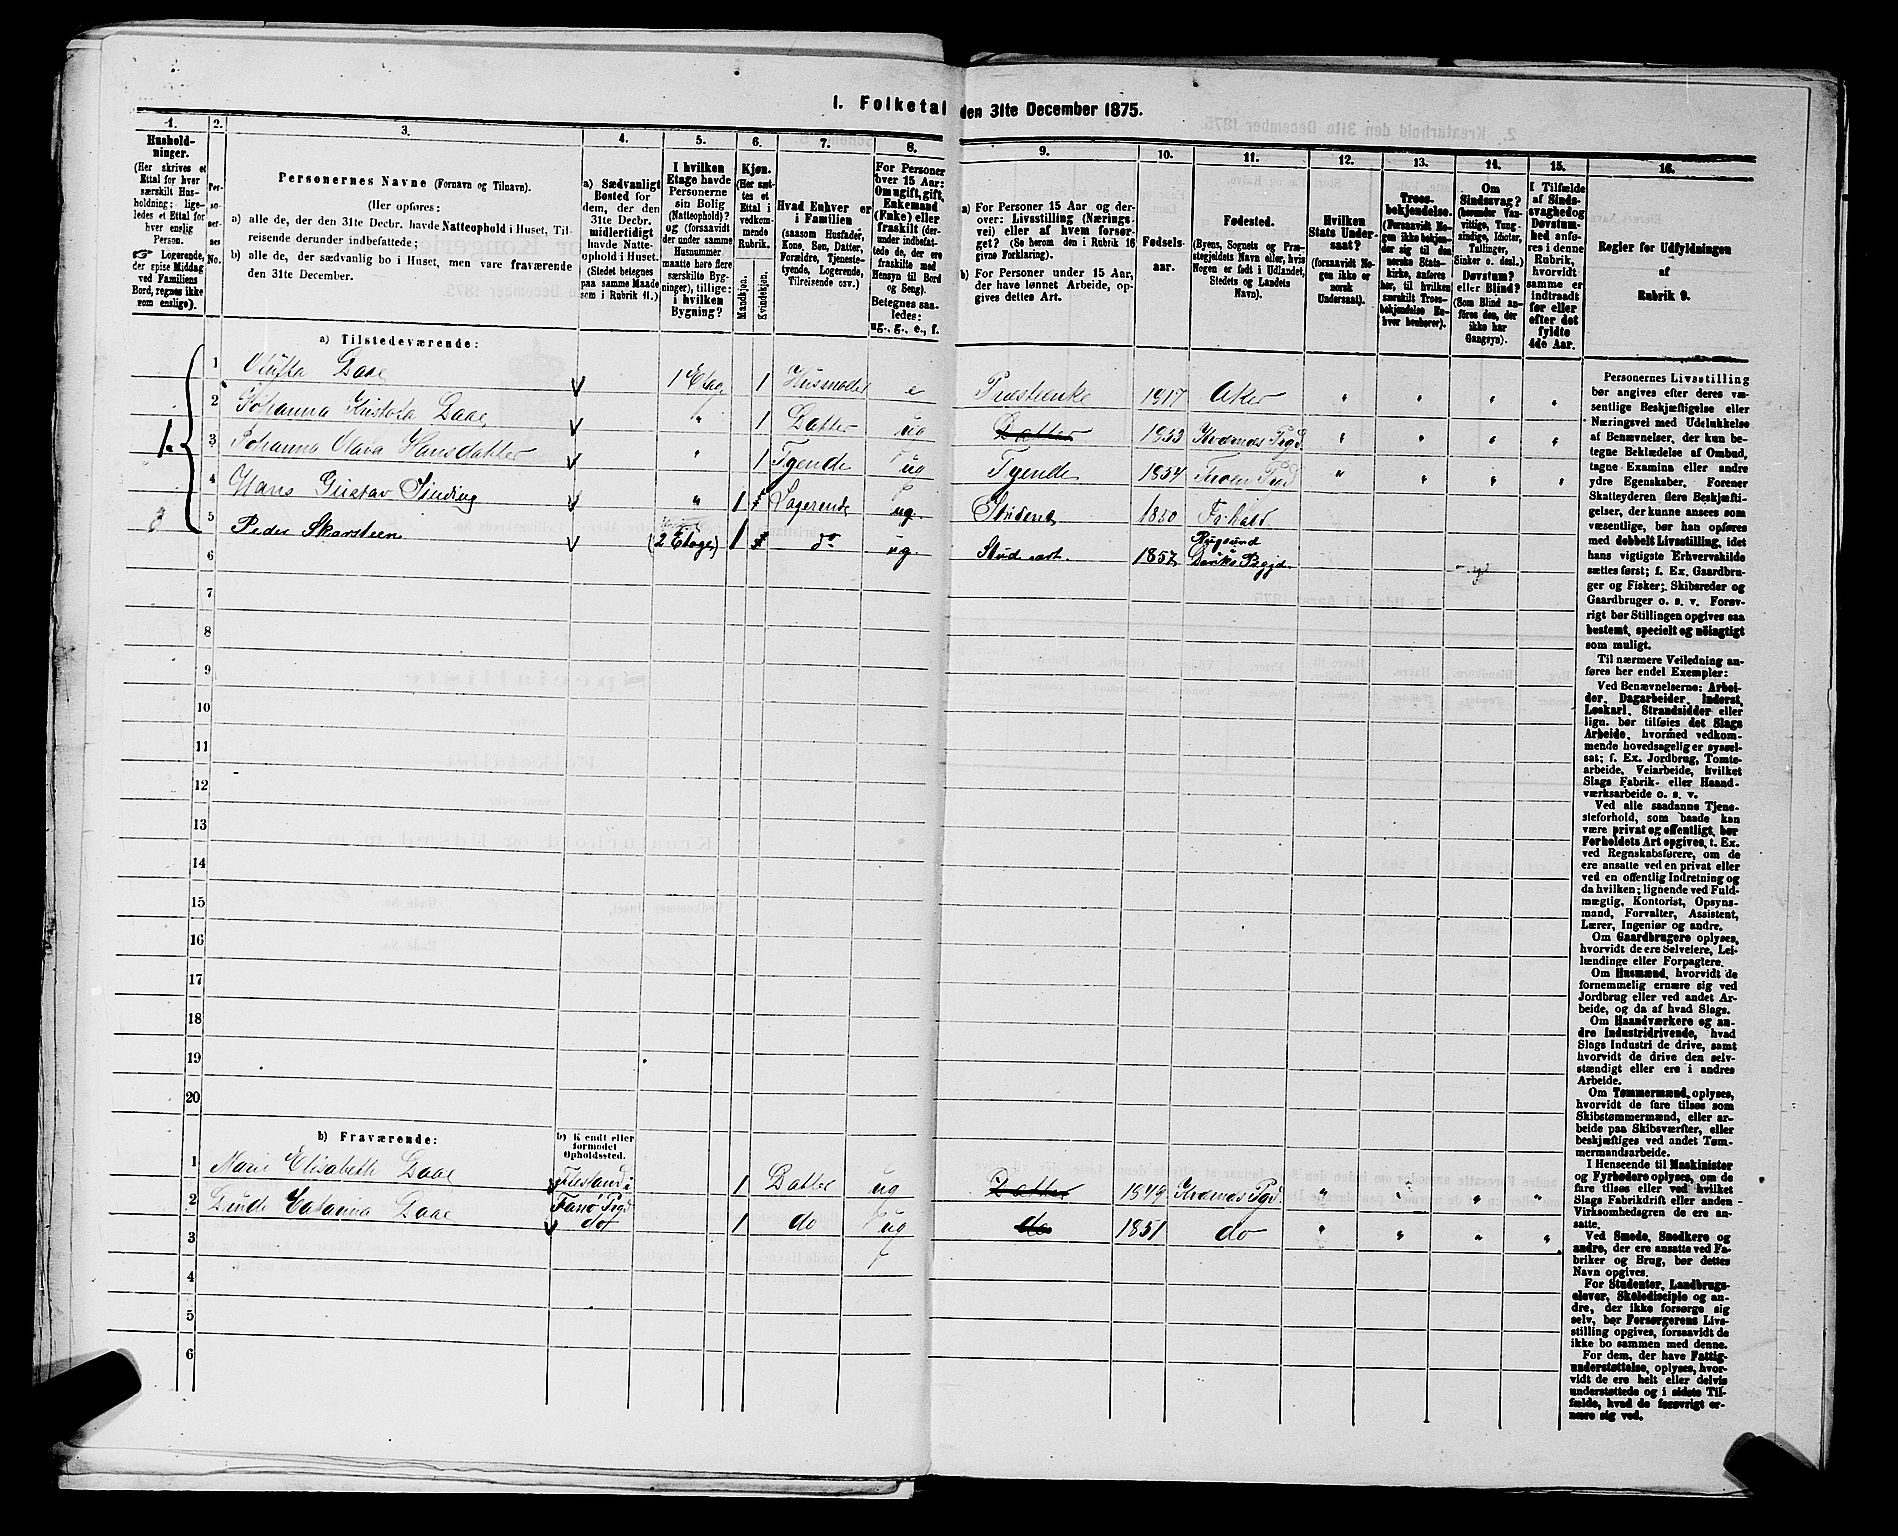 1. Folketal den 31te December 1875.
1.
Hushold-
ninger.
(Her skrives et
Ettal for hver
særskilt Hus-
holdning; lige-
ledes et Ettal for
hver enslig
Person.
Logerende,
der spise Middag
ved Familiens
Bord, regnes ikke
som enslige).
2.
Per-
so-
ner-
nes
No.
3.
Personernes Navne (Fornavn og Tilnavn).
(Her opføres:
a) alle de, der den 31te Decbr. havde Natteophold i Huset, Til-
reisende derunder indbefattede;
b) alle de, der sædvanlig bo i Huset, men vare fraværende
den 31te December.
4.
a) Sædvanligt
Bosted for
dem, der den
31te Decbr.
midlertidigt
havde Natte-
ophold i Huset.
(Stedet betegnes
paa samme Maade
som i Rubrik 11.)
5.
I hvilken
Etage havde
Personerne
sin Bolig
(Natteophold)?
og (forsaavidt
der under samme
Husnummer
maatte høre flere
særskilte Byg-
ninger), tillige:
i hvilken
Bygning?
6.
Kjøn.
(Her sæt-
tes et
Ettal i
vedkom-
mende
Rubrik.
Mandkjøn.
Kvindekjøn.
7.
Hvad Enhver er
i Familien
(saasom Husfader,
Kone, Søn, Datter,
Forældre, Tjeneste-
tyende, Logerende,
Tilreisende osv.)
8.
For Personer
over 15 Aar:
Om ugift, gift,
Enkemand
(Enke) eller
fraskilt (der-
under indbefat-
tede de, der ere
fraskilte med
Hensyn til Bord
og Seng).
Betegnes saa-
ledes:
ug., g., e., f.
9.
a) For Personer 15 Aar og der-
over: Livsstilling (Nærings-
vei) eller af hvem forsør-
get? (Se herom den i Rubrik 16
givne Forklaring).
b) For Personer under 15 Aar,
der have lønnet Arbeide, op-
gives dettes Art.
10.
Fødsels-
aar.
11.
Fødested.
(Byens, Sognets og Præ-
stegjeldets Navn eller, hvis
Nogen er født i Udlandet,
Stedets og Landets
Navn).
12.
Hvilken
Stats Under-
saat?
(forsaavidt No-
gen ikke er
norsk
Undersaat).
13.
Troes-
bekjendelse.
(Forsaavidt No-
gen ikke bekjen-
der sig til den
norske Stats-
kirke, anføres
her, til hvilken
særskilt Troes-
bekjendelse En-
hver henhører).
14.
Om
Sindssvag?
(herunder Van-
vittige, Tung-
sindige, Idioter,
Tullinger,
Sinker o. desl.)
Døvstum?
eller Blind?
(Som Blind an-
føres den, der
ikke har
Gangsyn).
15.
I Tilfælde
af Sinds-
svaghed og
Døvstum-
hed anfø-
res i denne
Rubrik,
hvorvidt
samme er
indtraadt
før eller
efter det
fyldte
4de Aar.
16.
Regler for Udfyldningen
af
Rubrik 9.
a) Tilstedeværende:
1.
1 Gusta Daae 1 Etage 1 Husmoder e Præsteenke 1817 Aker " " " "
2 Johanna Kristofa Daae " 1 Datter ug Datter 1853 Kvernes Prgd " " " "
3 Johanna Maria Hansdatter " 1 Tyende ug Tyende 1854 " " " "
4 Hans Gustav Sinding " 1 Logerende ug. Student 1850
5 Peder Skarsteen (2 Etage) 1 do ug. Stud. art. 1857 Rugsund
6
7
8
9
10
11
12
13
14
15
16
17
18
19
20
b) Fraværende:
b) Kendt eller
formodet
Opholdssted.
1 Marie Elisabeth Daae 1 Datter ug Datter 1849 Kvernes Prgd. " " " "
2 Daae do 1 do ug do 1851 do " " " "
3
4
5
6
Personernes Livsstilling
bør angives efter deres væ-
sentlige Beskjæftigelse eller
Næringsvei med Udelukkelse
af Benævnelser, der kun be-
tegne Beklædelse af Ombud,
tagne Examina eller andre
ydre Egenskaber. Forener
Skatteyderen flere Beskjæfti-
gelser, der kunne ansees som
væsentlige, bør han opføres
med dobbelt Livsstilling, idet
hans vigtigste Erhvervskilde
sættes først; f. Ex. Gaardbru-
ger og Fisker; Skibsreder og
Gaardbruger o. s. v. Forøv-
rigt bør Stillingen opgives saa
bestemt, specielt og nöiagtigt
som muligt.
Til nærmere Veiledning an-
føres her endel Exempler:
Ved Benævnelserne: Arbei-
der, Dagarbeider, Inderst,
Løskarl, Strandsidder eller
lign. bør tilføies det Slags
Arbeide, hvormed vedkom-
mende hovedsagelig er syssel-
sat; f. Ex. Jordbrug, Tomte-
arbeide, Veiarbeide, hvilket
Slags Fabrik- eller Haand-
værksarbeide o. s. v.
Ved alle saadanne Tjene-
steforhold, som baade kan
være privat og offentligt, bør
Forholdets Art opgives, t. Ex.
ved Regnskabsførere, om de
ere ansatte ved en privat eller
ved en offentlig Indretning og
da hvilken; lignende ved Fuld-
mægtig, Kontorist, Opsyns-
mand, Forvalter, Assistent,
Lærer, Ingeniør og andre.
Om Gaardbrugere oplyses,
hvorvidt de ere Selveiere, Lei-
lændinge eller Forpagtere.
Om Husmænd, hvorvidt de
fornemmelig ernære sig ved
Jordbrug eller ved andet Ar-
beide, og da af hvad Slags.
Om Haandværkere og an-
dre Industridrivende, hvad
Slags Industri de drive, samt
hvorvidt de drive den selv-
stændigt eller ere i andres
Arbeide.
Om Tømmermænd, oplyses,
hvorvidt de fare tilsøs som
Skibstømmermænd, eller ar-
beide paa Skibsværfter, eller
beskjæftiges ved andet Tøm-
mermandsarbeide.
I Henseende til Maskinister
og Fyrbødere oplyses, om de
fare tilsøs eller ved hvilket
Slags Fabrikdrift eller anden
Virksomhedsgren de ere an-
satte.
Ved Smede, Snedkere og
andre, der ere ansatte ved Fa-
briker og Brug, bør dettes
Navn opgives.
For Studenter, Landbrugs-
elever, Skoledisciple og an-
dre, der ikke forsørge sig
selv, bør Forsørgerens Livs-
stilling opgives, forsaavidt de
ikke bo sammen med denne.
For dem, der have Fattig-
understøttelse, oplyses, hvor-
vidt de ere helt eller delvis
understøttede og i sidste Til-
fælde, hvad de forøvrigt er-
nære sig ved.